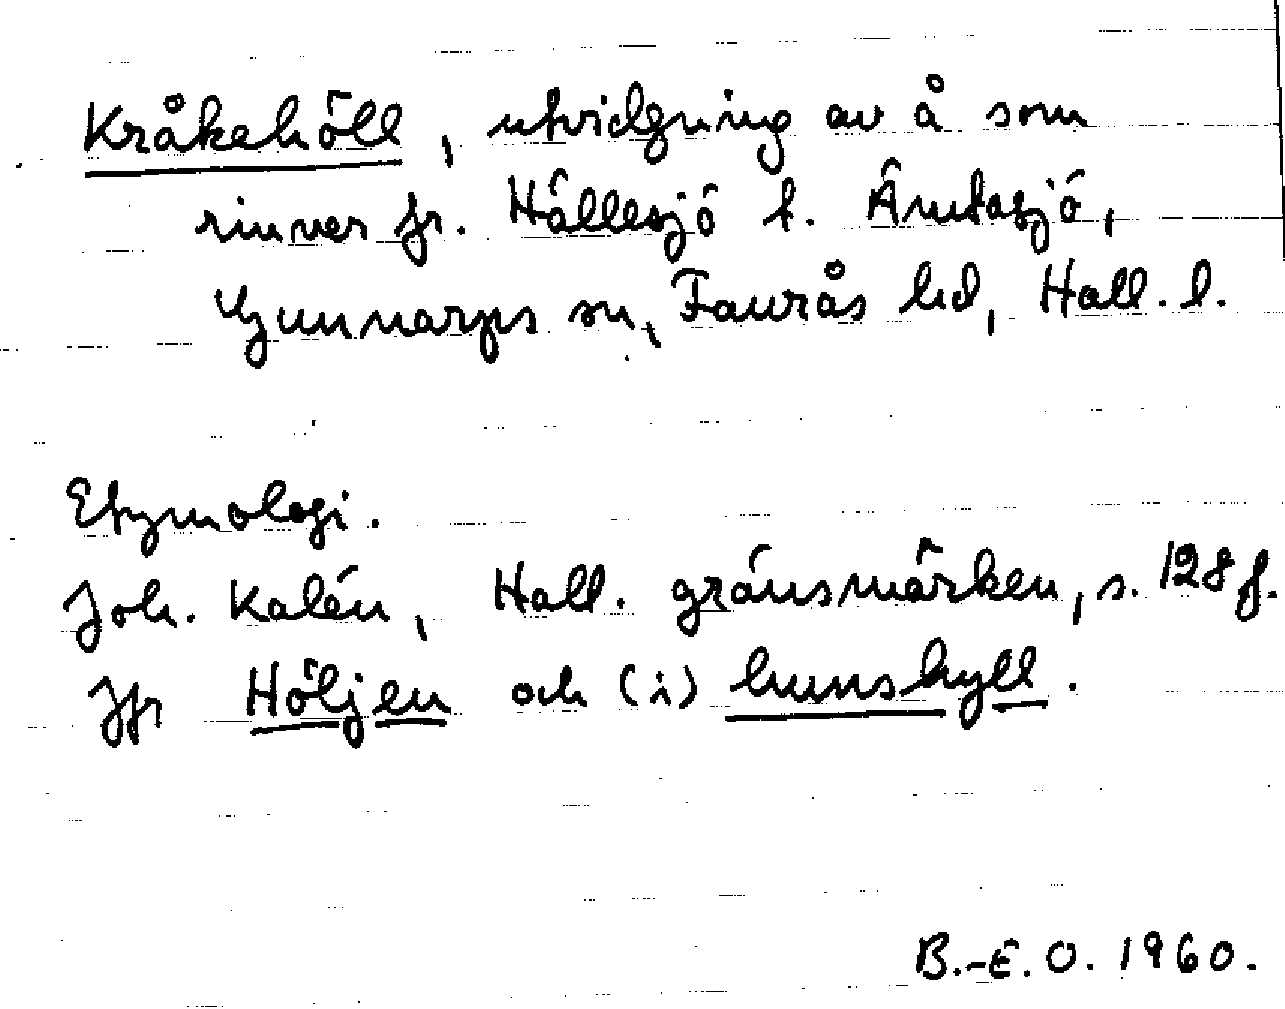 Kråkehöll, utvidgning av å som
rinner fr. Hällesjö t. Ämtasjö,
Gunnarps sn, Faurås hd, Hall. l.
Etymologi.
Joh. Kalén, Hall. gränsmärken, s. 128 f.
Jfr Höljen och (i) hunshyll.
B.-E. O. 1960.